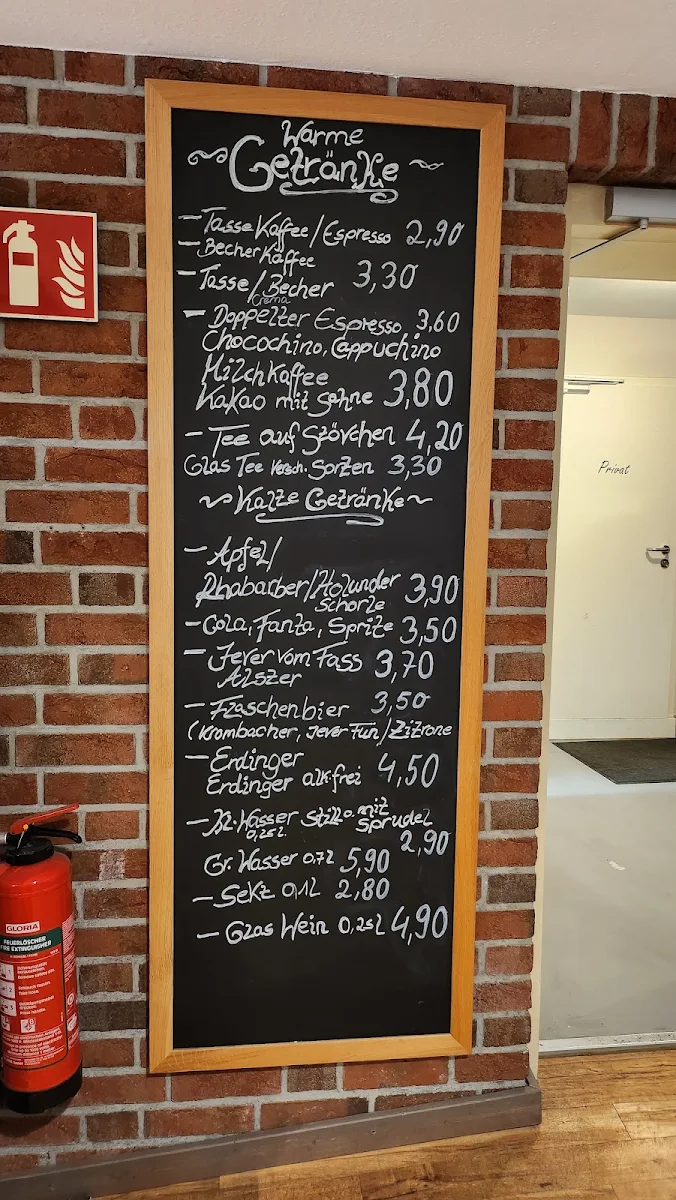 Warme
Getränke
- Tasse Kaffee/Espresso 2,90
- Becher Kaffee
- Tasse/Becher 3,30
Crema
- Doppelter Espresso 3,60
Chocochino, Cappuchino
Milchkaffee
Kakao mit Sahne 3,80
- Tee auf Stövchen 4,20
Glas Tee versch. Sorten 3,30
~ Kalte Getränke ~
- Apfel/
Rhabarber/Holunder 3,90
schorle
- Cola, Fanta, Sprite 3,50
- Jever vom Fass 3,70
Alster
- Flaschenbier 3,50
(Krombacher, Jever Fun/Zitrone
- Erdinger
Erdinger alk.frei 4,50
- Kl. Wasser still o. mit
0,25 l. Sprudel
2,90
Gr. Wasser 0,7 l 5,90
- Sekt 0,1 l 2,80
- Glas Wein 0,25 l 4,90
Privat
GLORIA
FEUERLÖSCHER
FIRE EXTINGUISHER